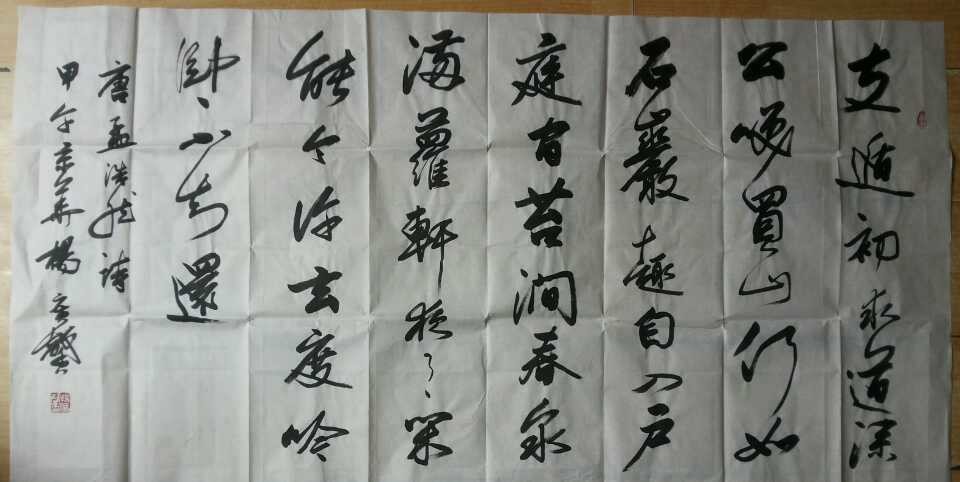 支遁初求道深
公咲買山何如
石巖趣自入户
庭間苔澗春泉
滿蘿軒夜月閑
能令許玄度吟
卧不知還
唐孟浩然詩
甲午京華楊